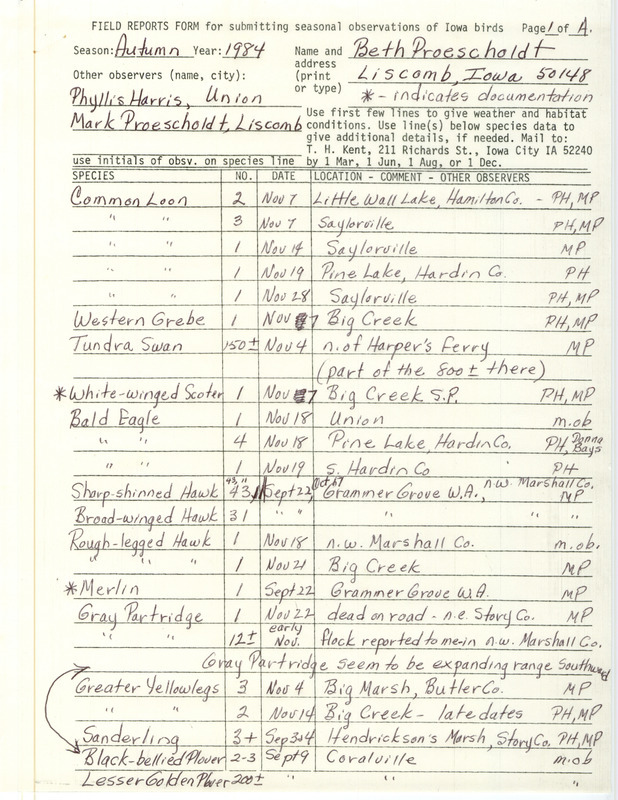 FIELD REPORTS FORM for submitting seasonal observations of Iowa birds Page 1 of A.
Season: Autumn Year: 1984 Name and address (print or type) Beth Proescholdt
Liscomb, Iowa 50148
Other observers (name, city):
* - indicates documentation
Phyllis Harris, Union
Mark Proescholdt, Liscomb
Use first few lines to give weather and habitat
conditions. Use line(s) below species data to
give additional details, if needed. Mail to:
T. H. Kent, 211 Richards St., Iowa City IA 52240
use initials of obsv. on species line by 1 Mar, 1 Jun, 1 Aug, or 1 Dec.
SPECIES NO. DATE LOCATION - COMMENT - OTHER OBSERVERS
Common Loon 2 Nov 7 Little Wall Lake, Hamilton Co. - PH, MP
" " 3 Nov 7 Saylorville PH, MP
" " 1 Nov 14 Saylorville MP
" " 1 Nov 19 Pine Lake, Hardin Co. PH
" " 1 Nov 28 Saylorville PH, MP
Western Grebe 1 Nov 7 Big Creek PH, MP
Tundra Swan 150± Nov 4 n. of Harper's Ferry MP
(part of the 800± there)
*White-winged Scoter 1 Nov 7 Big Creek S.P. PH, MP
Bald Eagle 1 Nov 18 Union m.ob
" " 4 Nov 18 Pine Lake, Hardin Co. PH, Donna Bays
" " 1 Nov 19 s. Hardin Co PH
Sharp-shinned Hawk 43, 11 Sept 22, Oct 67 Grammer Grove W.A., n.w. Marshall Co. MP
Broad-winged Hawk 31 " " " " "
Rough-legged Hawk 1 Nov 18 n.w. Marshall Co. m.ob.
" " " 1 Nov 21 Big Creek MP
*Merlin 1 Sept 22 Grammer Grove W.A. MP
Gray Partridge 1 Nov 22 dead on road - n.e. Story Co. MP
" " 12± early Nov. flock reported to me in n.w. Marshall Co.
Gray Partridge seem to be expanding range Southward
Greater Yellowlegs 3 Nov 4 Big Marsh, Butler Co. MP
" " 2 Nov 14 Big Creek - late dates PH, MP
Sanderling 3+ Sep 3+4 Hendrickson's Marsh, Story Co. PH, MP
Black-bellied Plover 2-3 Sept 9 Coralville m.ob
Lesser Golden Plover 200± " " "